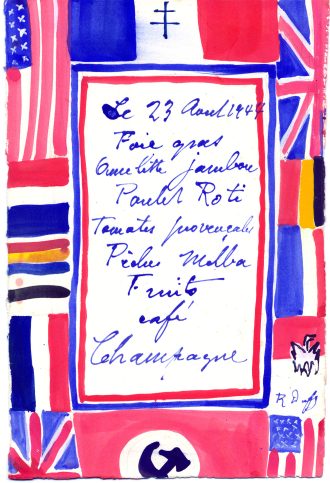 Le 23 Aout 1944
Foie gras
Omelette jambon
Poulet Roti
Tomates provençales
Pêches Melba
Fruits
café
Champagne
R Dufy